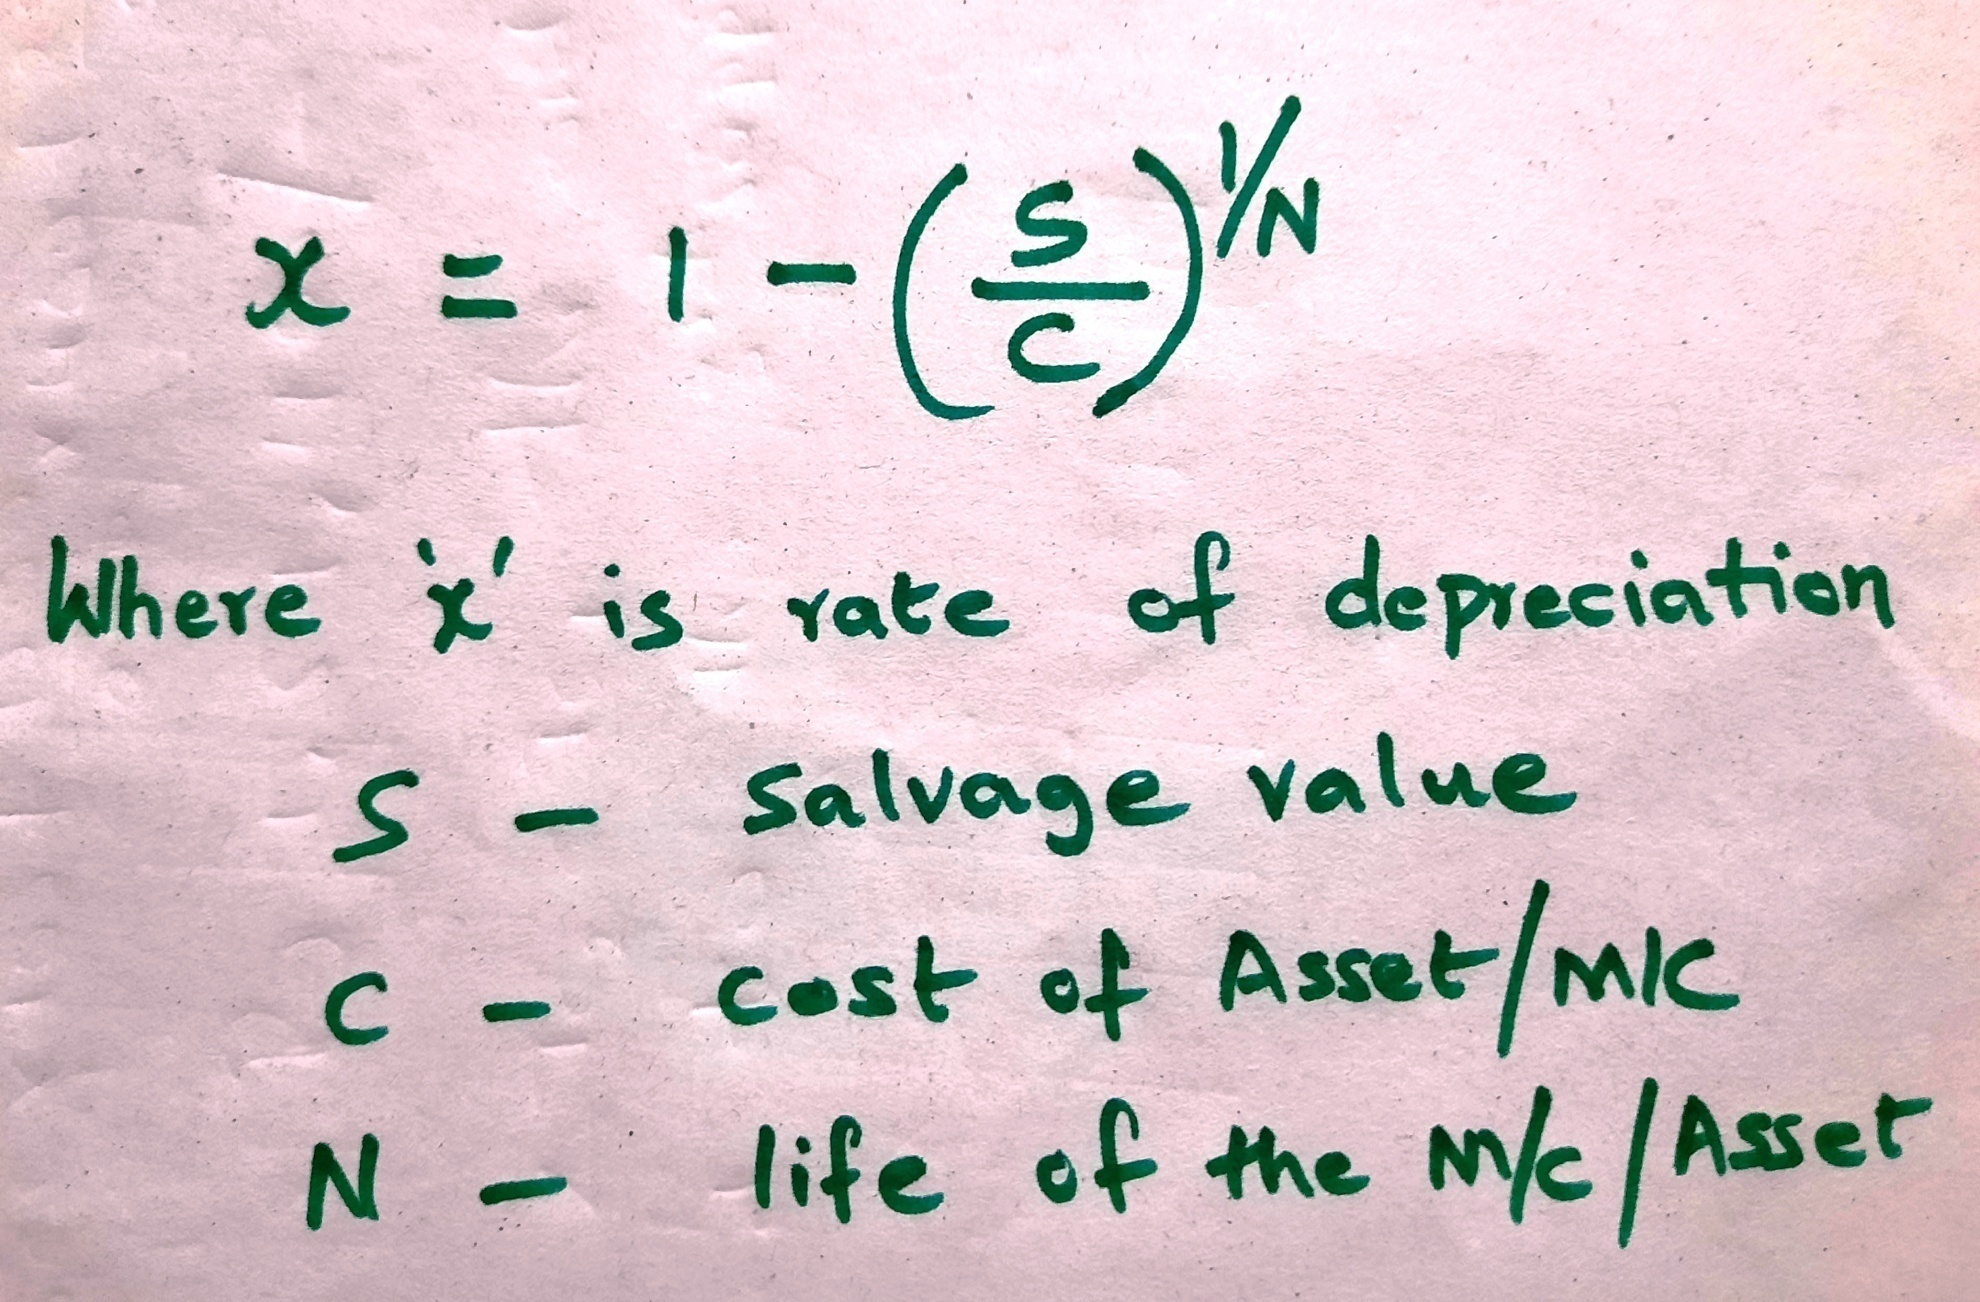 x = 1 - (S/C)^1/N
Where 'x' is rate of depreciation
S - Salvage value
C - cost of Asset/M/C
N - life of the M/c/Asset